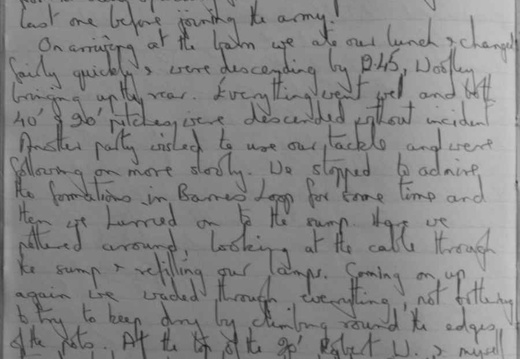 last one before joining the army.
On arriving at the barn we ate our lunch & changed
fairly quickly & were descending by 2.45, Woolley
bringing up the rear. Everything went well and both
40' & 90' pitches were descended without incident
Another party wished to use our tackle and were
following on more slowly. We stopped to admire
the formations in Barnes Loop for some time and
then we hurried on to the sump. Here we
pottered around, looking at the cable through
the sump & refilling our lamps. Coming on up
again we waded through everything, not bothering
to try to keep dry by climbing round the edges
of the pots. At the top of the 90' Robert W. & myself